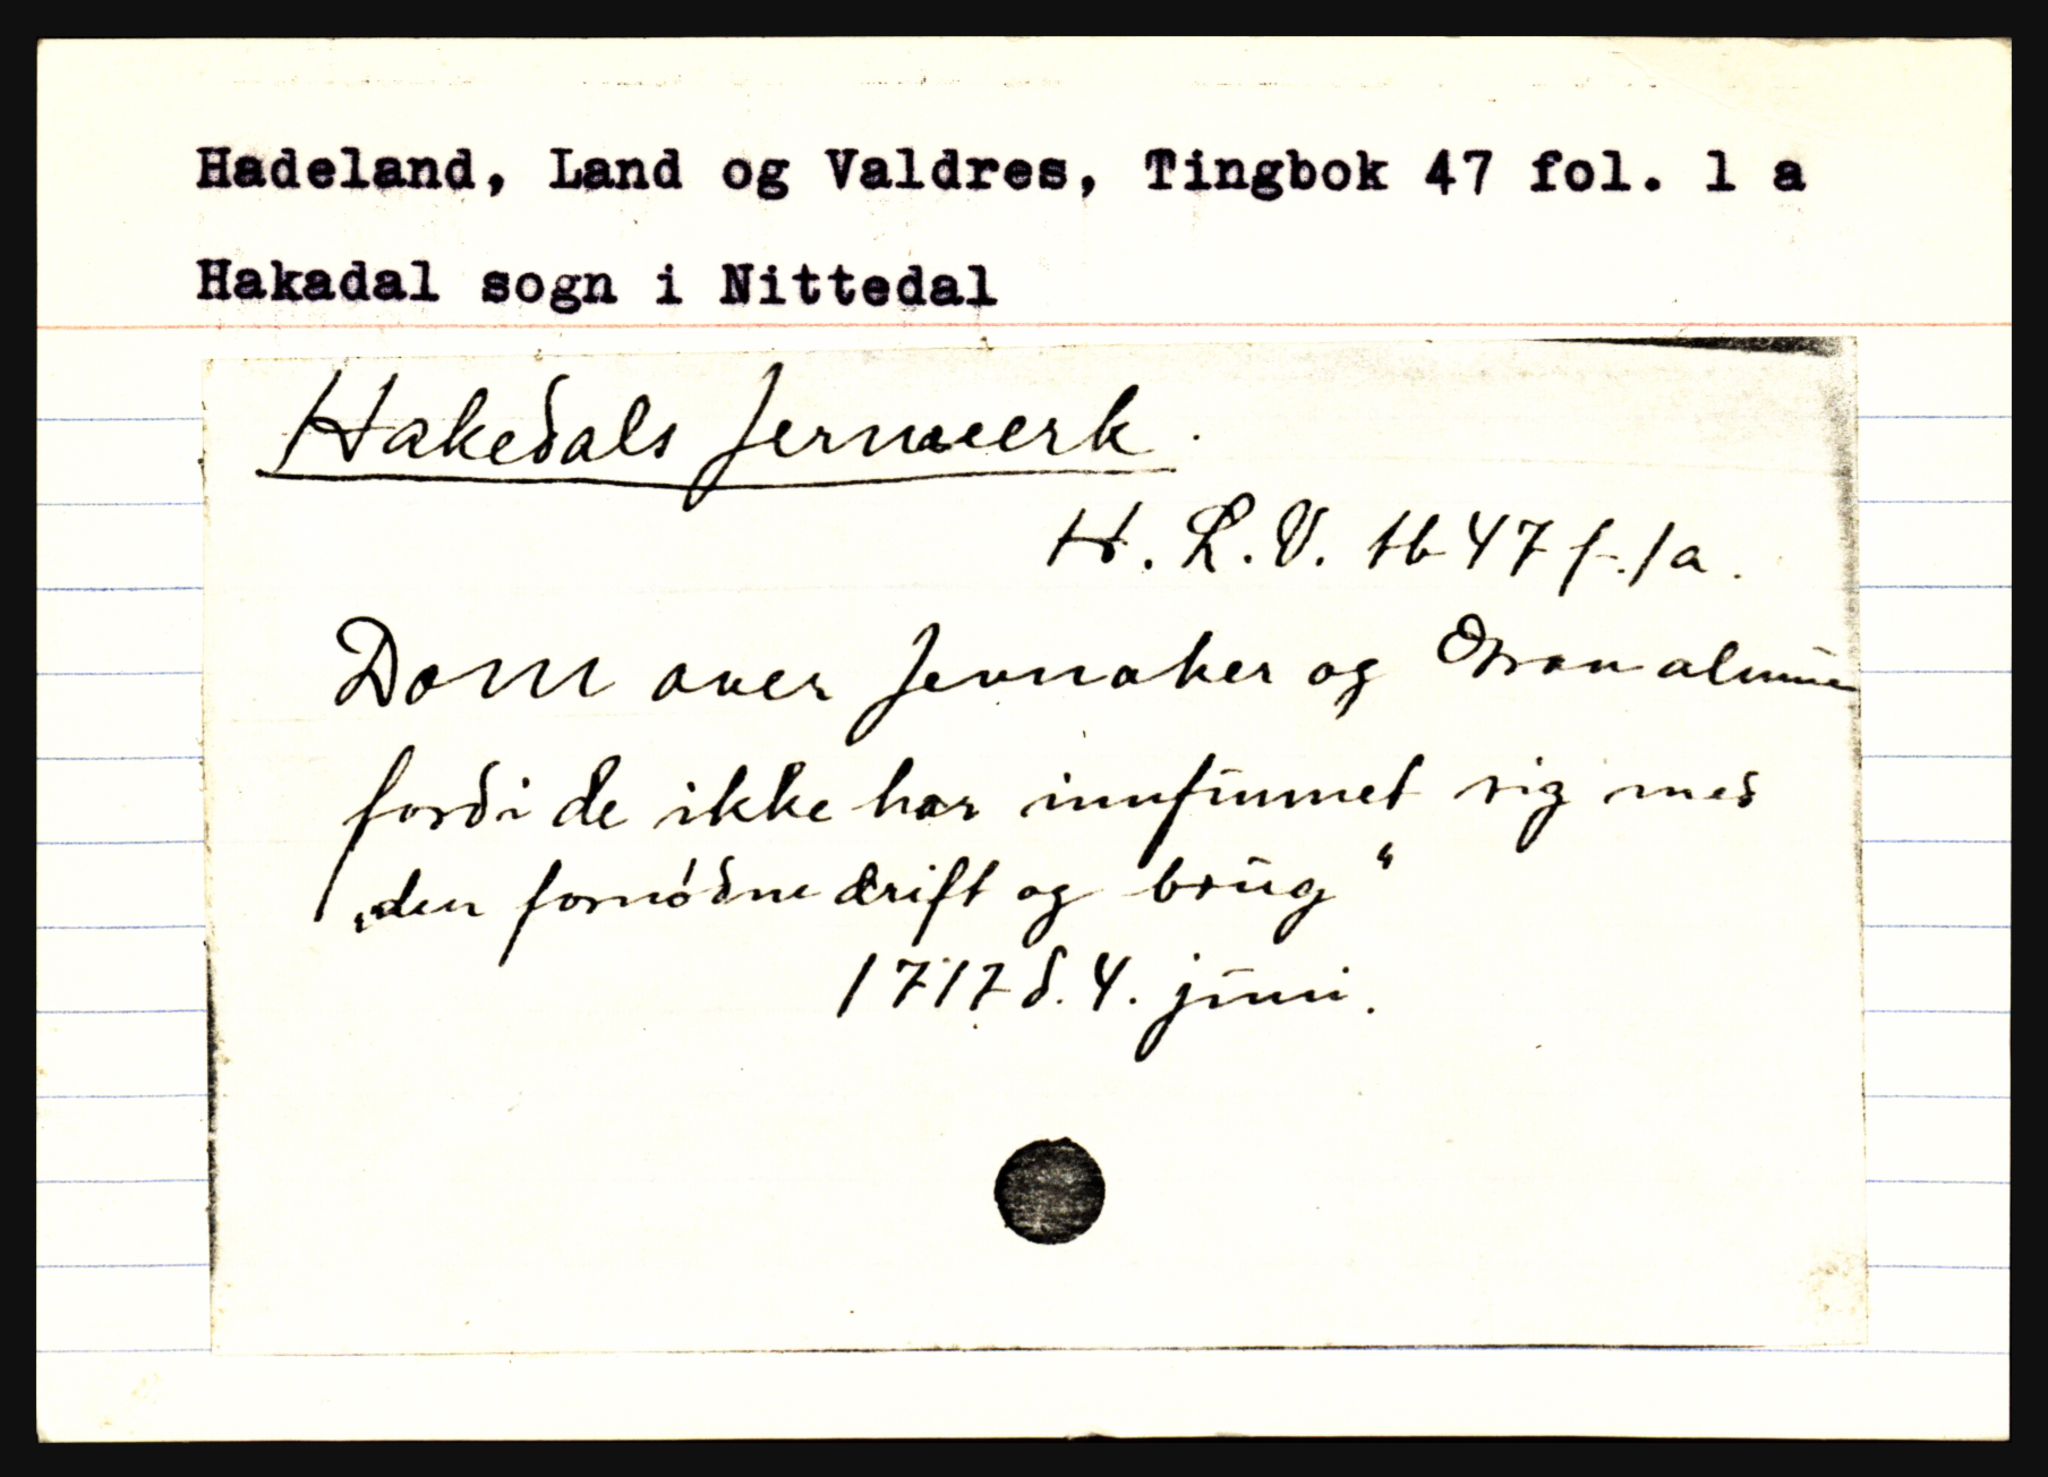 Hadeland, Land og Valdres, Tingbok 47 fol. 1 a
Hakadal sogn i Nittedal
Hakedals Jernverk.
H. L. V. tb 47 f. 1a.
Dom over Jevnaker og Gran almue
fordi de ikke har innfunnet sig med
„den fornødne drift og brug“
1717 d. 4. juni.